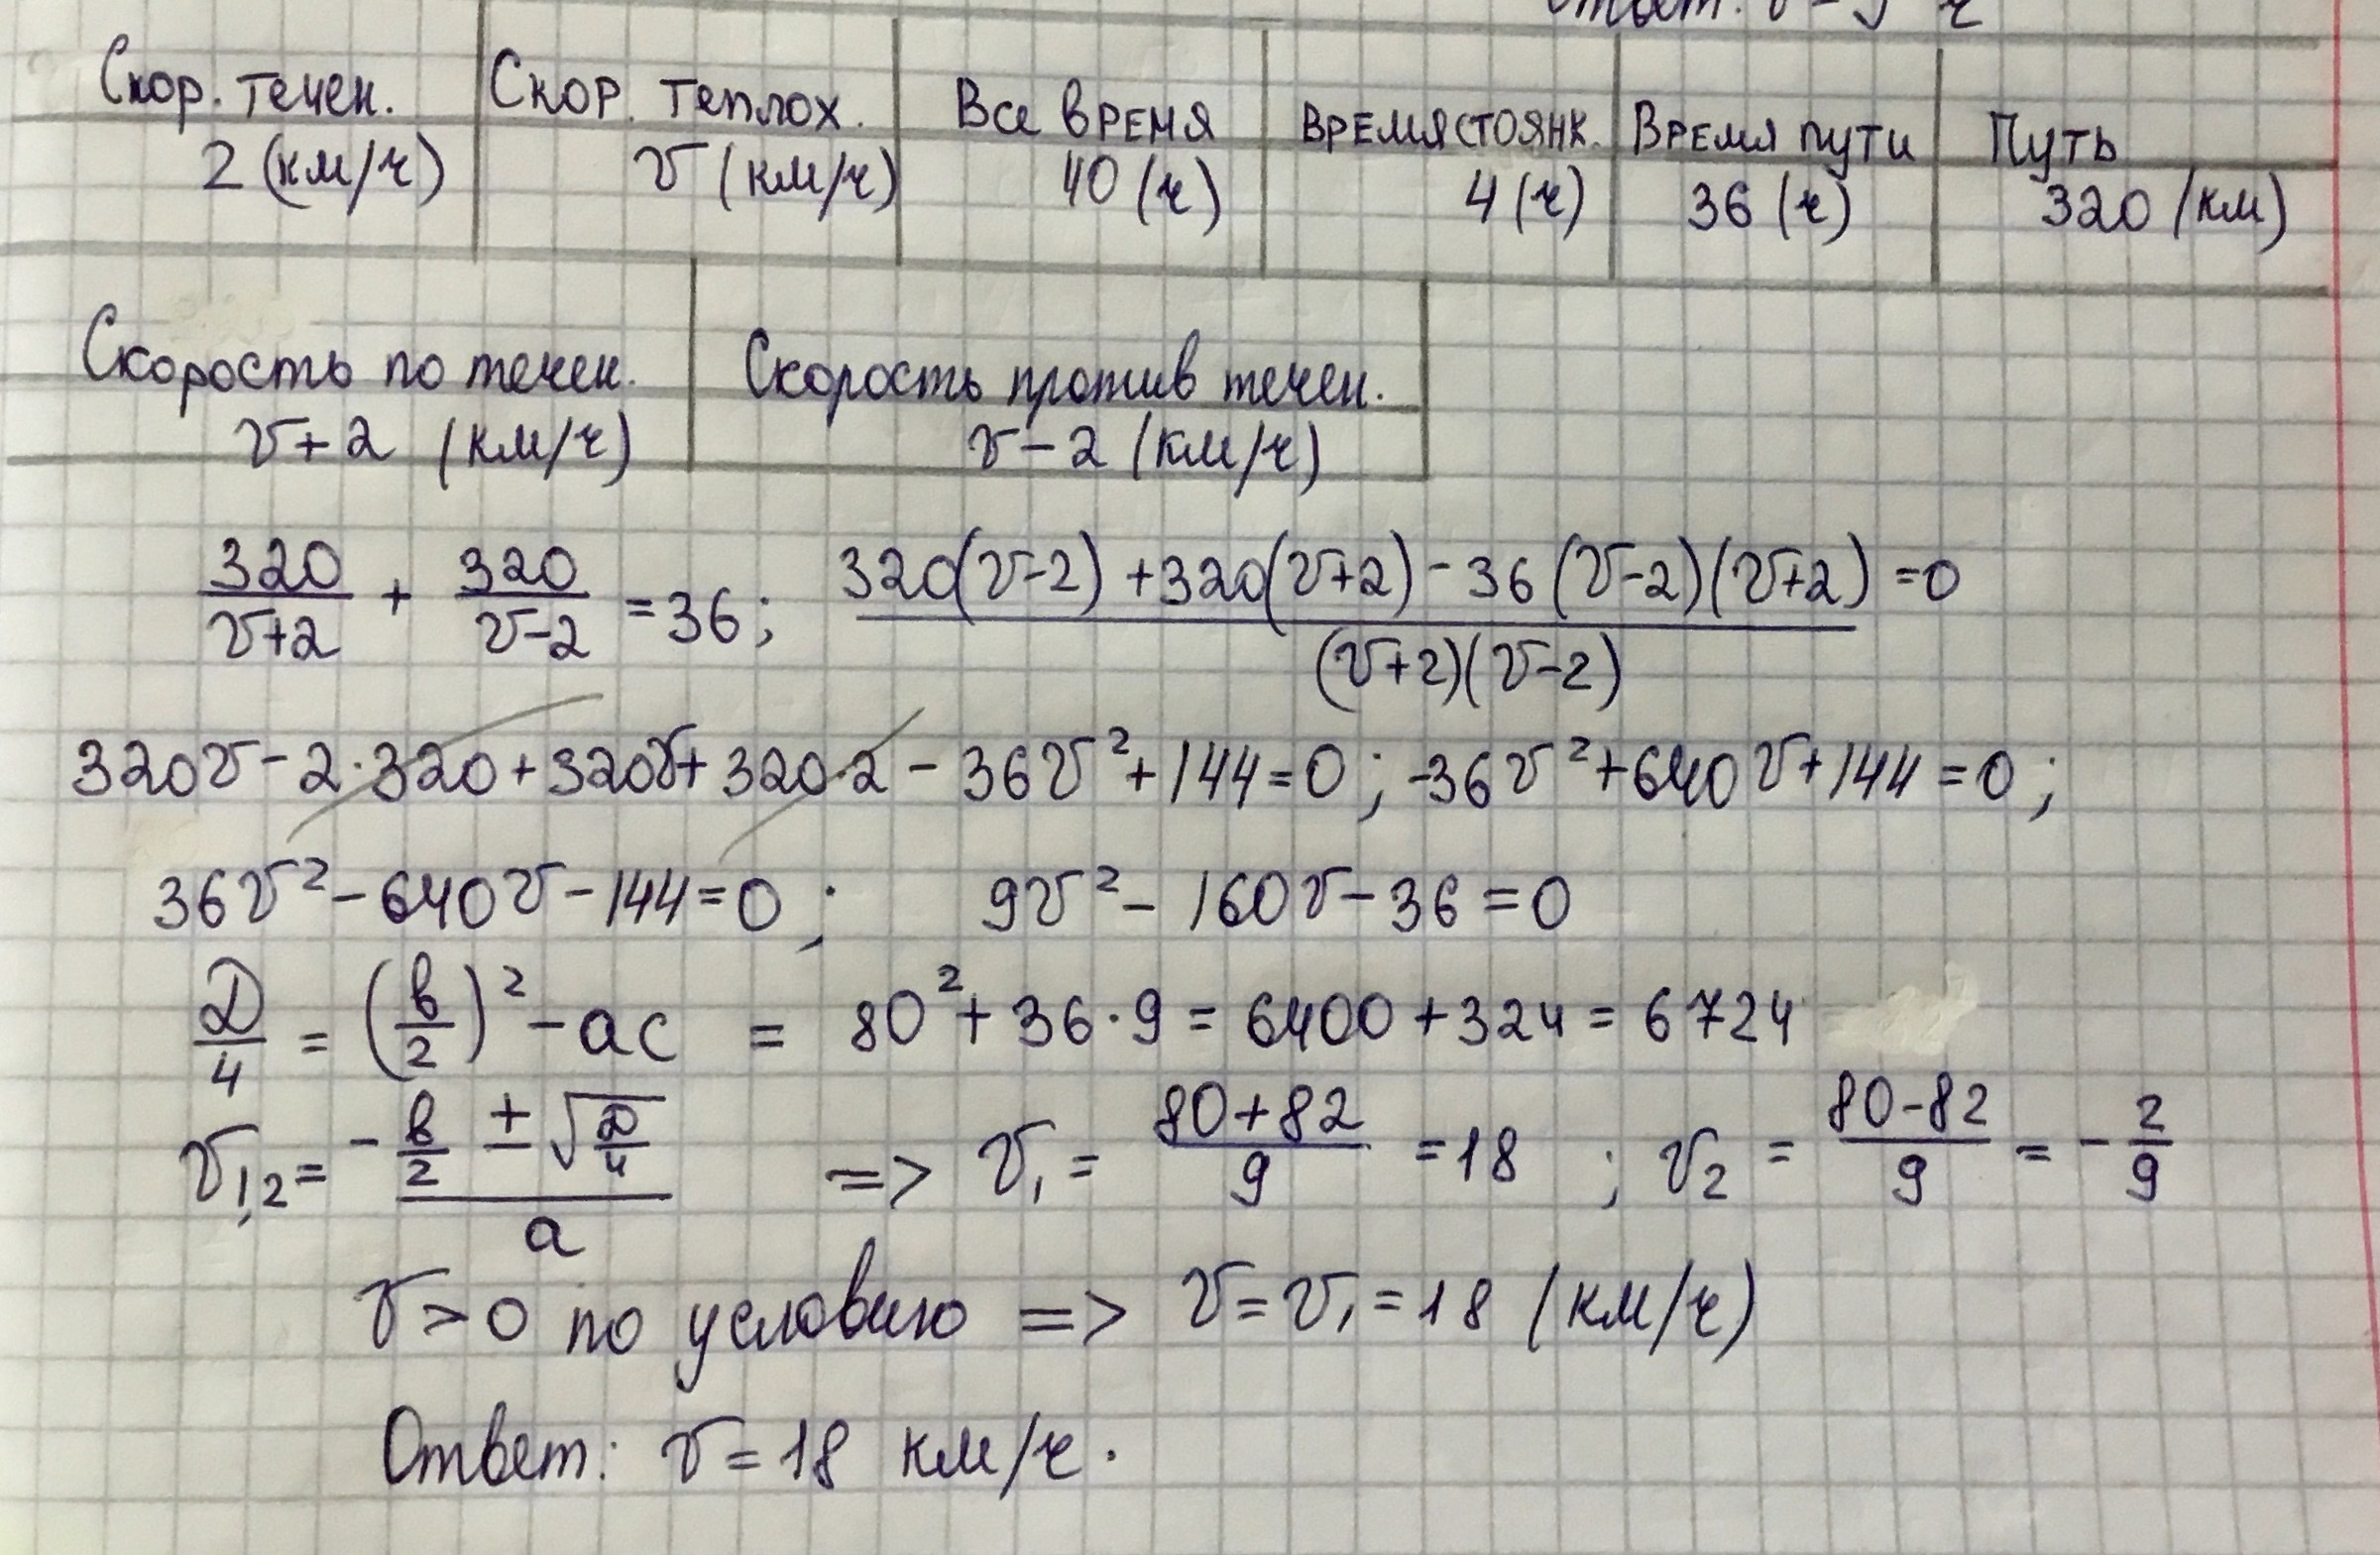 Скор. течен. Скор. теплох. Все время Время стоянк. Время пути Путь
2 (км/ч) v (км/ч) 40 (ч) 4 (ч) 36 (ч) 320 (км)
Скорость по течен. Скорость против течен.
v+2 (км/ч) v-2 (км/ч)
320/(v+2) + 320/(v-2) = 36; (320(v-2)+320(v+2)-36(v-2)(v+2))/((v+2)(v-2)) = 0
320v-2·320+320v+320·2-36v²+144=0; -36v²+640v+144=0;
36v²-640v-144=0; 9v²-160v-36=0
D/4 = (b/2)²-ac = 80²+36·9=6400+324=6724
v1,2 = (-b/2 ± √(D/4))/a => v1 = (80+82)/9 = 18; v2 = (80-82)/9 = -2/9
v>0 по условию => v=v1=18 (км/ч)
Ответ: v=18 км/ч.